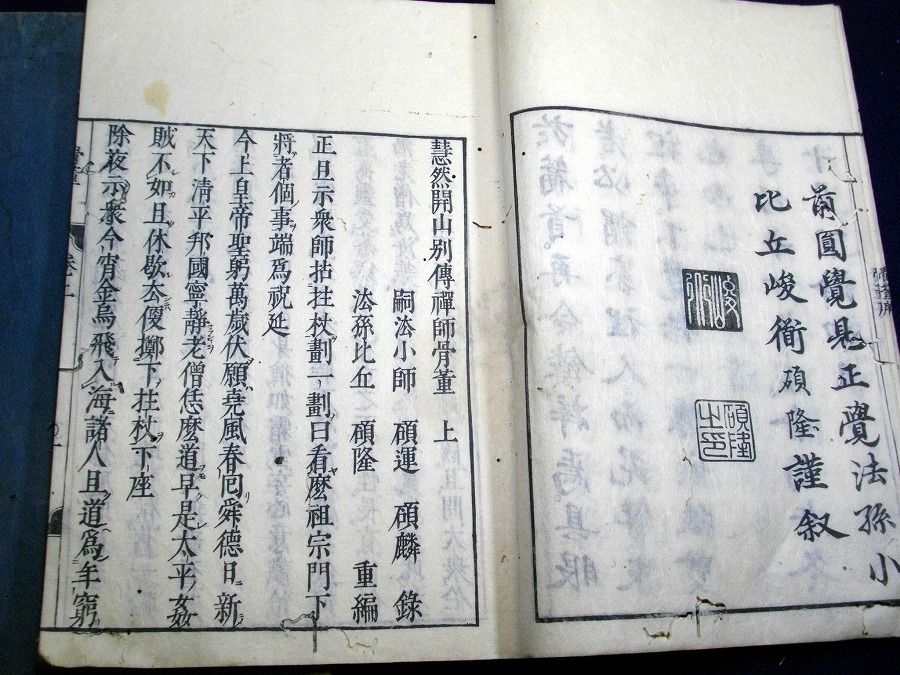 前圓覺見正覺法孫小
比丘峻衝碩隆謹叙
碩隆之印
慧然開山別傳禪師骨董 上
嗣法小師 碩運 碩麟 錄
法孫比丘 碩隆 重編
正旦示衆師拈拄杖劃一劃曰看麽祖宗門下
將者個事端爲祝延
今上皇帝聖躬萬歲伏願堯風春囘舜德日新
天下淸平邦國寧靜老僧恁麽道早是太平姦
賊不如且休歇去便擲下拄杖下座
除夜示衆今宵金烏飛入海諸人且道爲年窮